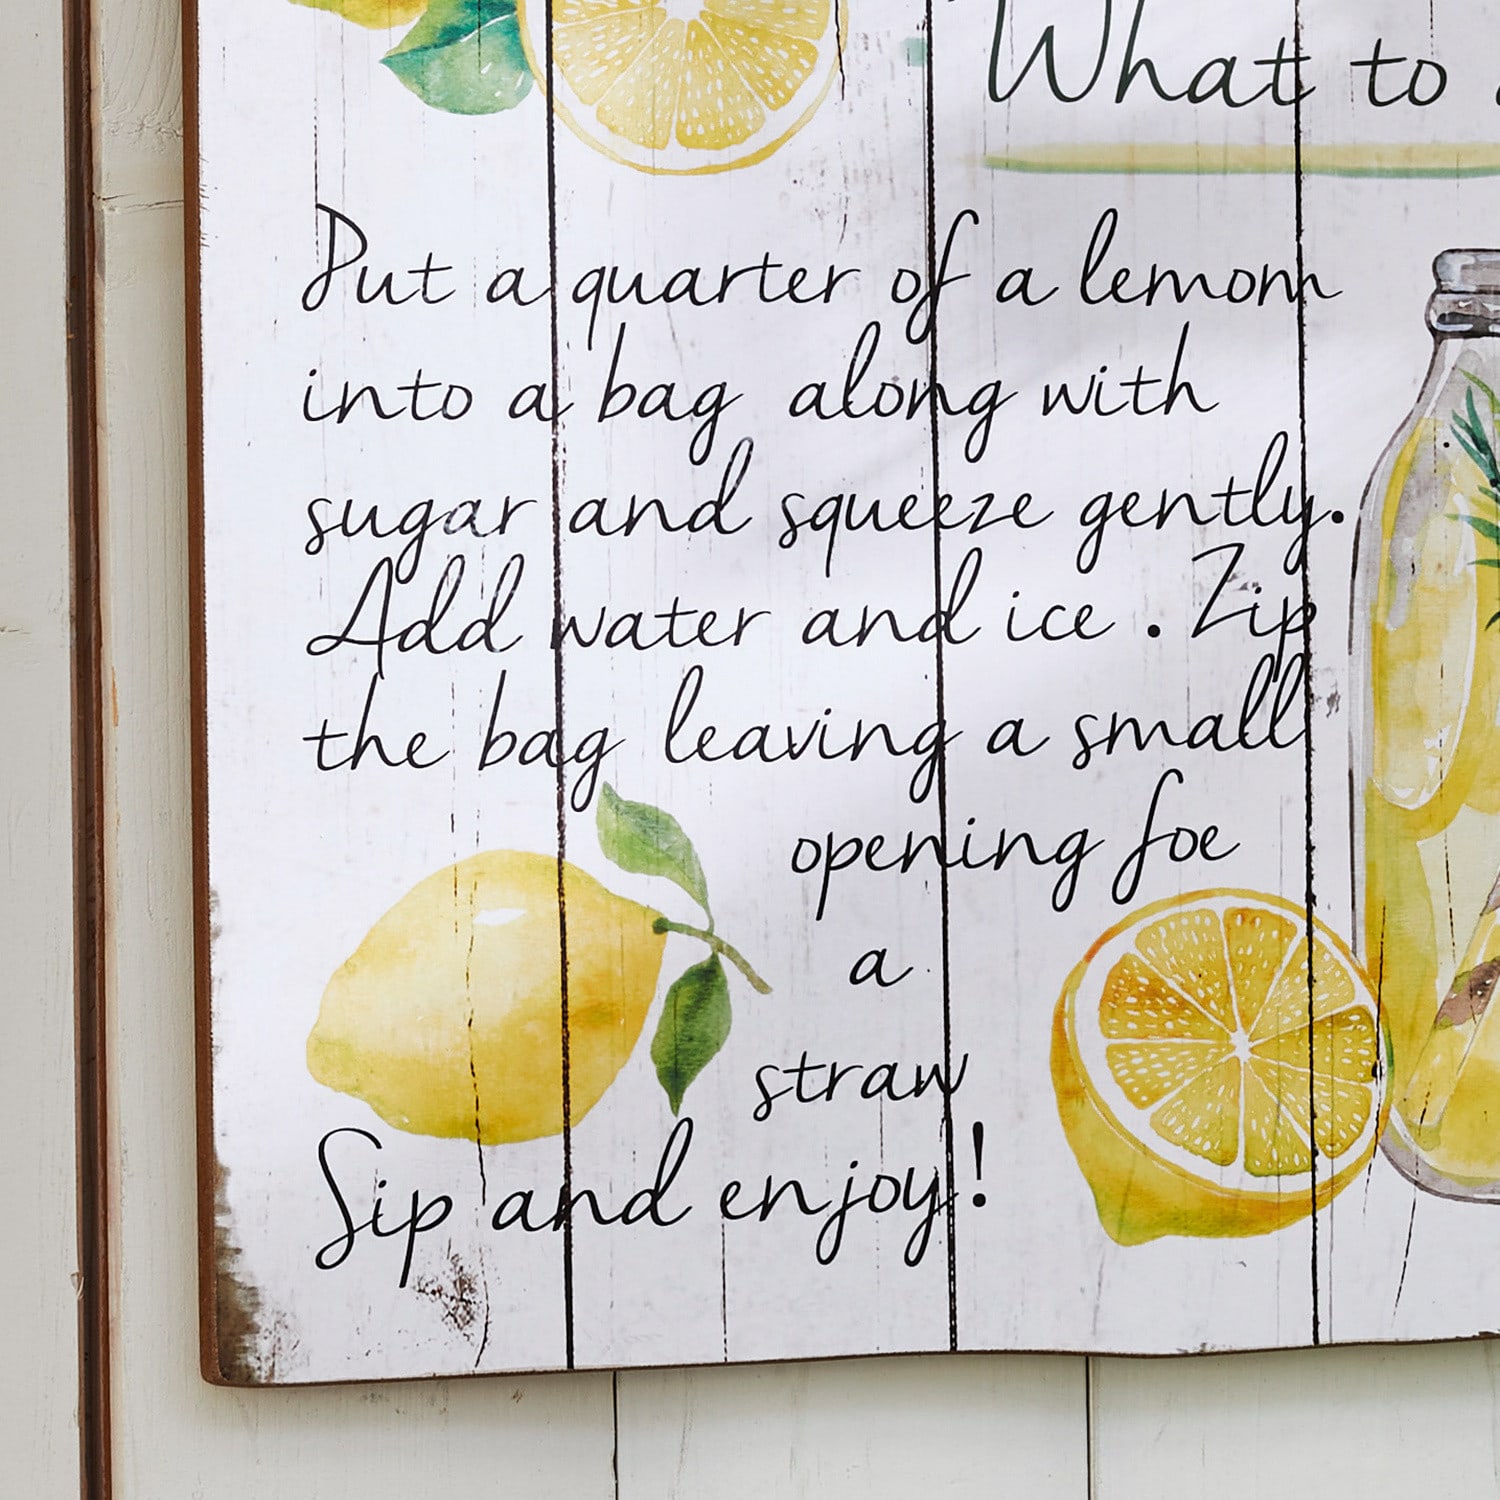 What to
Put a quarter of a lemonn
into a bag along with
sugar and squeeze gently.
Add water and ice . Zip
the bag leaving a small
opening foe
a
straw
Sip and enjoy!